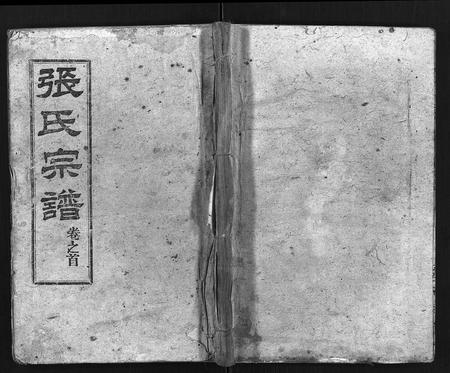 張氏宗譜
卷之首